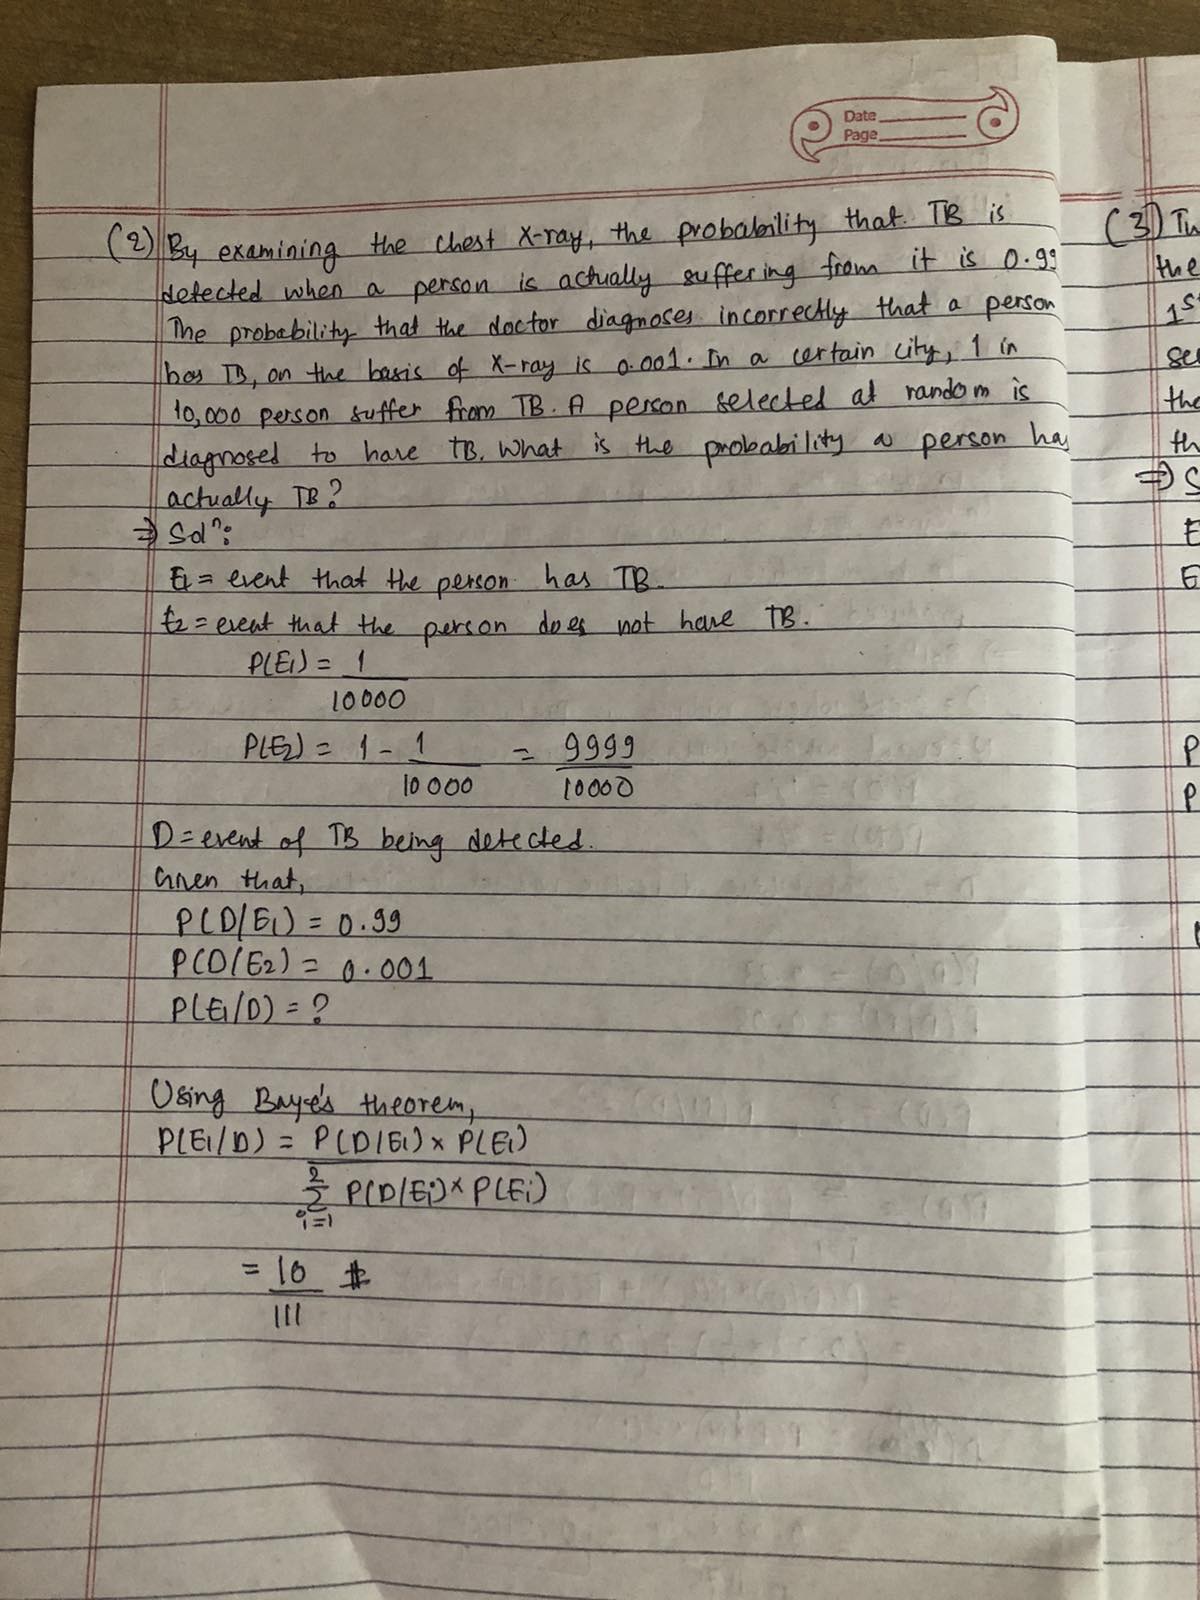 Date
Page
(2) By examining the chest X-ray, the probability that TB is
detected when a person is actually suffering from it is 0.99
The probability that the doctor diagnoses incorrectly that a person
has TB, on the basis of X-ray is 0.001. In a certain city, 1 in
10,000 person suffer from TB. A person selected at random is
diagnosed to have TB. What is the probability a person has
actually TB?
⇒ Solⁿ:
E1 = event that the person has TB.
E2 = event that the person does not have TB.
P(E1) = 1
10000
P(E2) = 1 - 1 = 9999
10000 10000
D = event of TB being detected.
Given that,
P(D/E1) = 0.99
P(D/E2) = 0.001
P(E1/D) = ?
Using Baye's theorem,
P(E1/D) = P(D/E1) × P(E1)
2
Σ P(D/Ei) × P(Ei)
i=1
= 10 #
111
(3)
the
1st
the
⇒ S
E
E
P
P